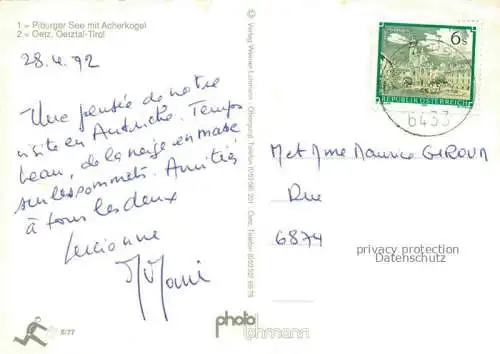 1 = Piburger See mit Acherkogel
2 = Oetz, Oetztal-Tirol
28.4.92
Une pensée de notre
visite en Autriche. Temps
beau, de la neige en masse
sur les sommets. Amitiés
à tous les deux
Lucienne
© Verlag Werner Lohmann, Obergurgl, Telefon
6 S
REPUBLIK ÖSTERREICH
6433
M et Mme Maurice
Rue
6874
privacy protection
Datenschutz
photo
lohmann
8/77